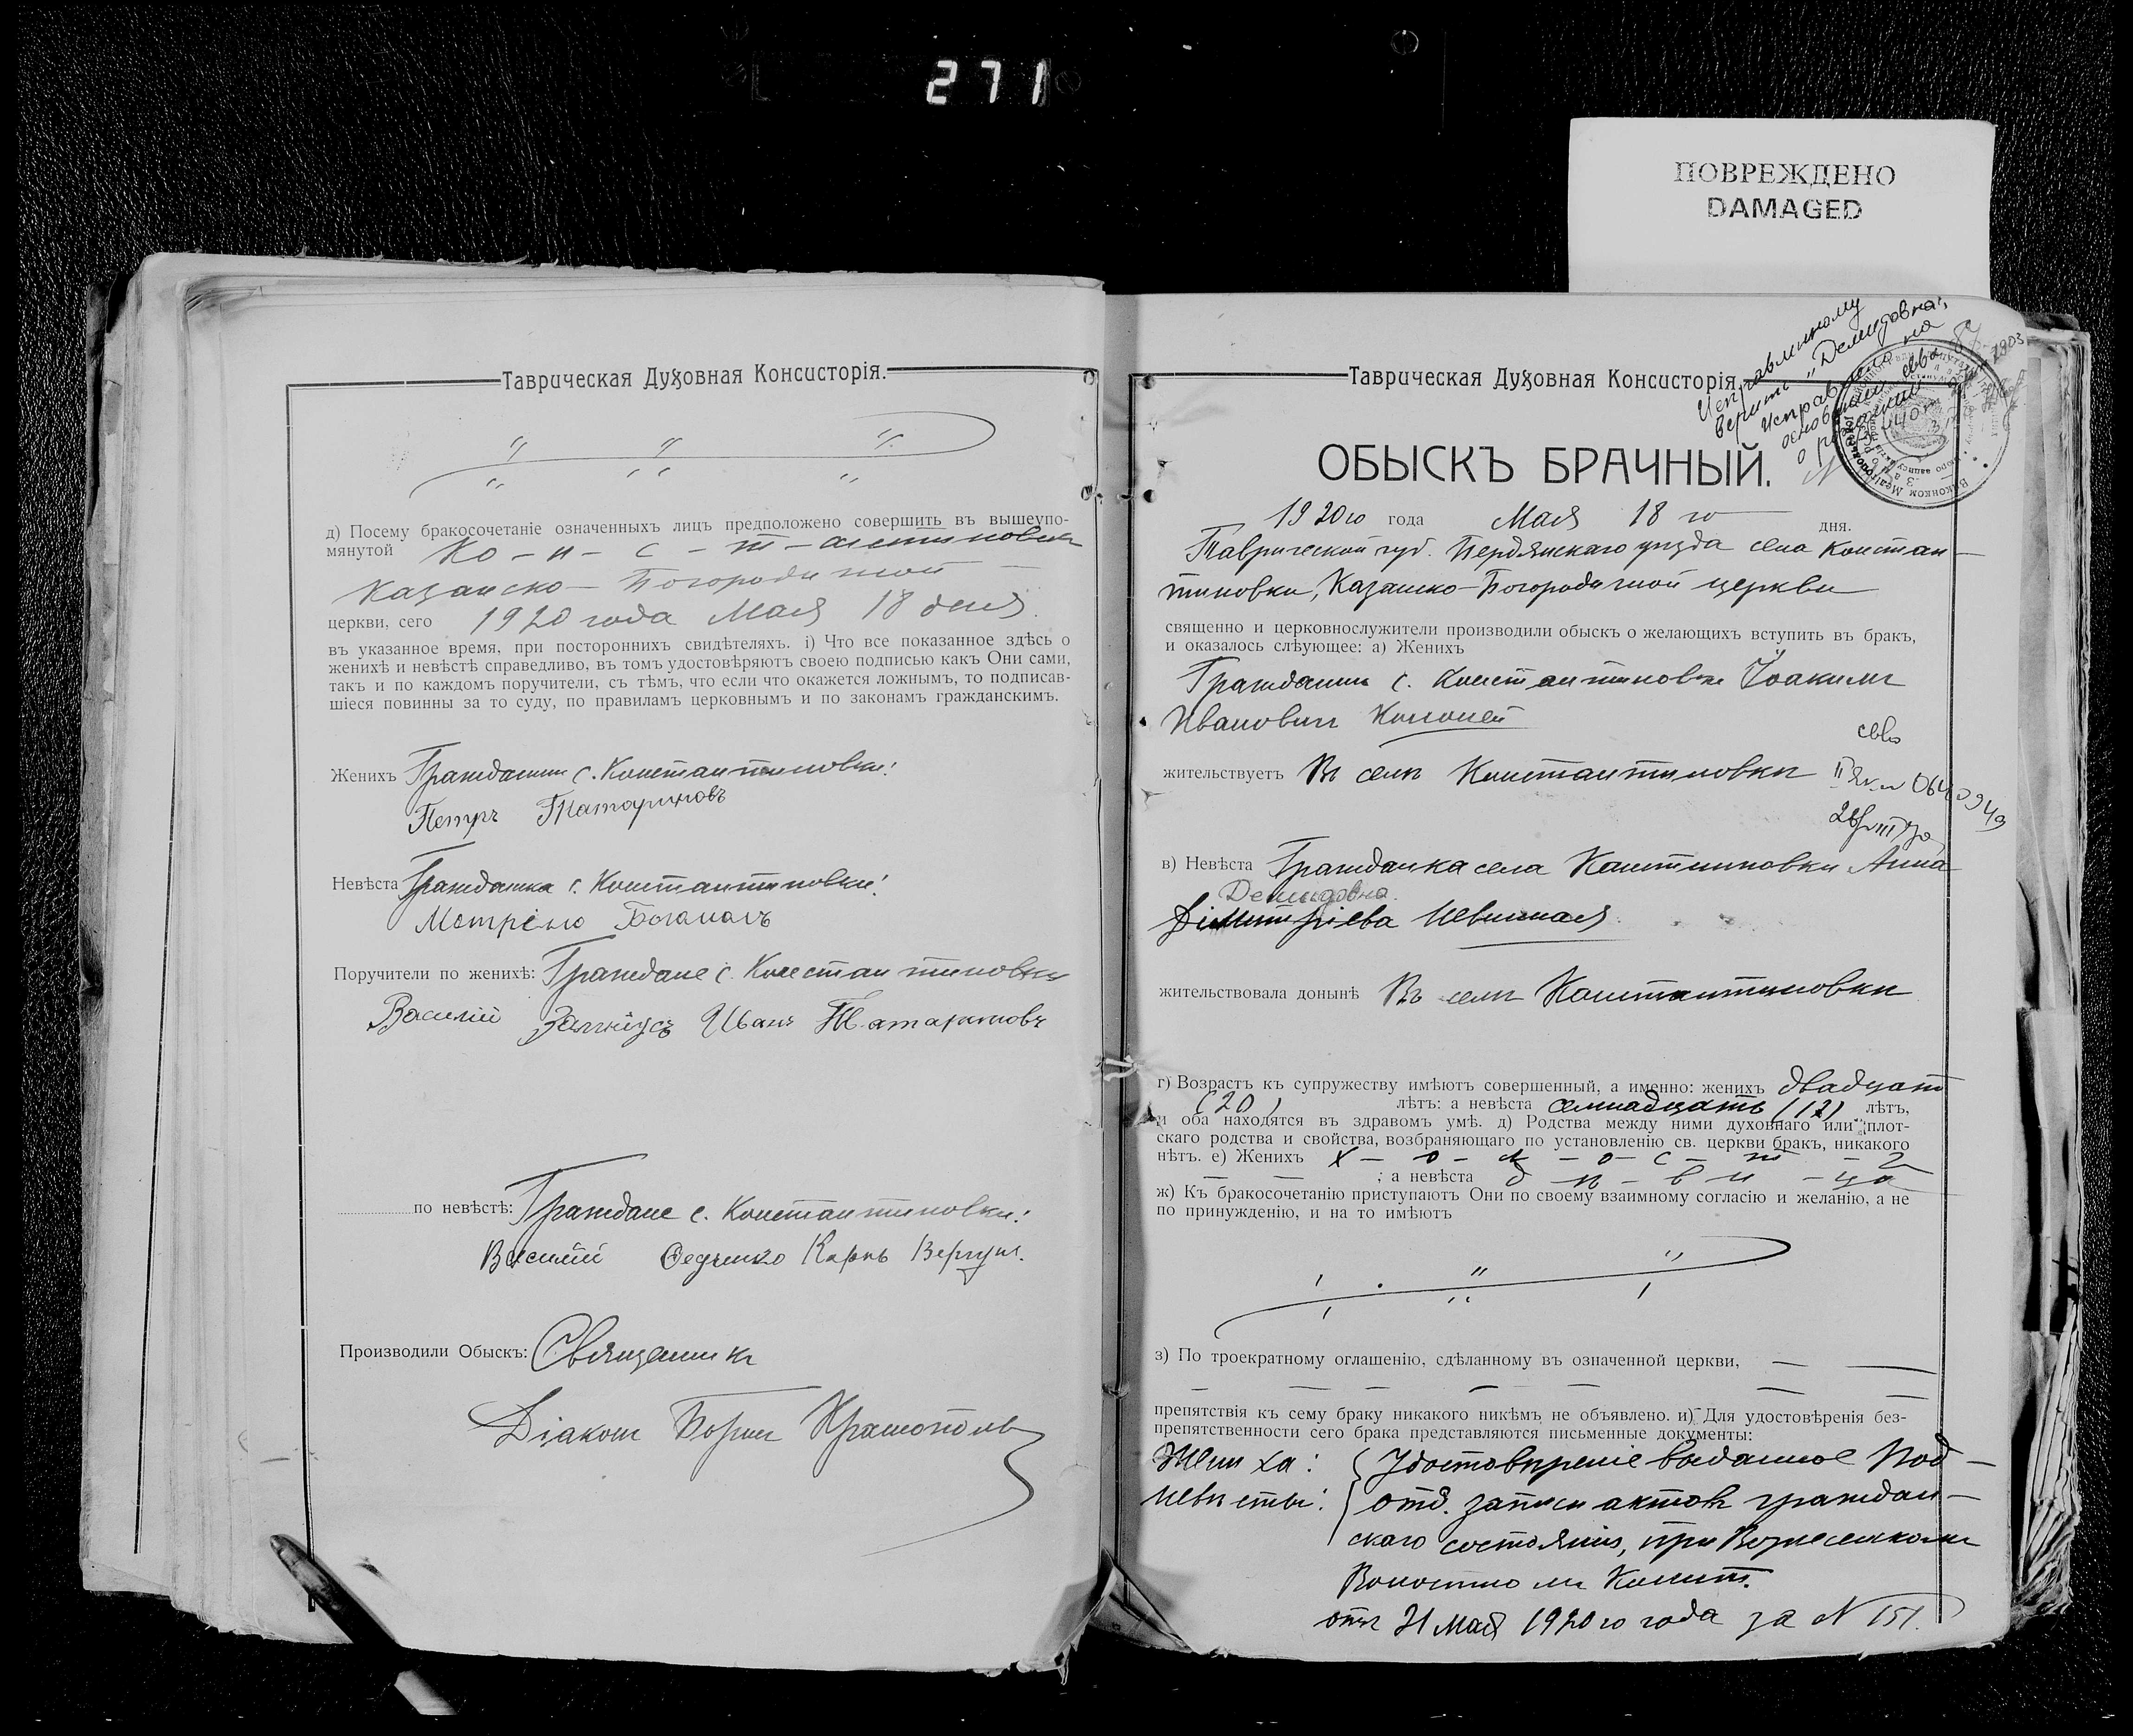 271
ПОВРЕЖДЕНО
DAMAGED
Таврическая Духовная Консисторія.
д) Посему бракосочетаніе означенныхъ лицъ предположено совершить въ вышеупо-
мянутой Ко-н-с-т-антиновск
Казанско-Богородичной
церкви, сего 1920 года Мая 18 дня.
въ указанное время, при постороннихъ свидѣтеляхъ. і) Что все показанное здѣсь о
женихѣ и невѣстѣ справедливо, въ томъ удостовѣряютъ своею подписью какъ Они сами,
такъ и по каждомъ поручители, съ тѣмъ, что если что окажется ложнымъ, то подписав-
шіеся повинны за то суду, по правиламъ церковнымъ и по законамъ гражданскимъ.
Женихъ Гражданин с. Константиновки:
Петръ Татариновъ
Невѣста Гражданка с. Константиновки:
Мотрёна
Поручители по женихѣ: Граждане с. Константиновки
Василій Иванъ Татариновъ
по невѣстѣ: Граждане с. Константиновки:
Василий Карпъ Вергун.
Производили Обыскъ: Священникъ
Діаконъ Борисъ
Таврическая Духовная Консисторія.
Исправленному
верить „Демидовна",
Исправлено на
основании свва
о рождении
ОБЫСКЪ БРАЧНЫЙ.
1920го года Мая 18го дня.
Таврической губ. Бердянскаго уѣзда села Констан-
тиновки, Казанско-Богородичной церкви
священно и церковнослужители производили обыскъ о желающихъ вступить въ бракъ,
и оказалось слѣующее: а) Женихъ
Гражданинъ с. Константиновки Іоакимъ
Ивановичъ Кононей
свво
жительствуетъ Въ селѣ Константиновкѣ
в) Невѣста Гражданка села Константиновки Анна
Демидовна
Дімитріева Невинная
жительствовала донынѣ Въ селѣ Константиновкѣ
г) Возрастъ къ супружеству имѣютъ совершенный, а именно: женихъ двадцать
(20) лѣтъ: а невѣста семнадцать (17) лѣтъ,
и оба находятся въ здравомъ умѣ. д) Родства между ними духовнаго или плот-
скаго родства и свойства, возбраняющаго по установленію св. церкви бракъ, никакого
нѣтъ. е) Женихъ х-о-л-о-с-т-ъ
; а невѣста д-ѣ-в-и-ца
ж) Къ бракосочетанію приступаютъ Они по своему взаимному согласію и желанію, а не
по принужденію, и на то имѣютъ
з) По троекратному оглашенію, сдѣланному въ означенной церкви,
препятствія къ сему браку никакого никѣмъ не объявлено. и) Для удостовѣренія без-
препятственности сего брака представляются письменные документы:
Жениха: Удостовѣреніе выданное Под-
Невѣсты: отд. записи актовъ граждан-
скаго состоянія, при Вознесенскомъ
Волостномъ Комит.
отъ 21 мая 1920го года за N 151.